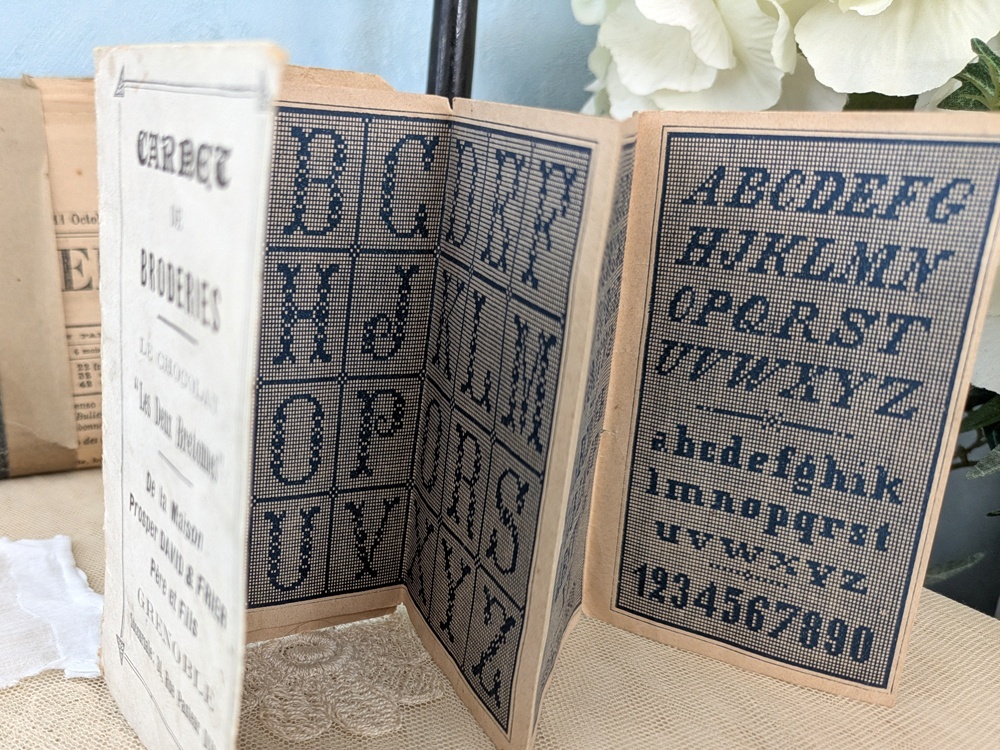 CARNET
DE
BRODERIES
LE CHOCOLAT
"Les Deux Bretonnes"
De la Maison
Prosper DAVID &
Père et Fils
GRENOBLE
B C
H J
O P
U V
D E F
K L M
R S
X Y Z
ABCDEFG
HJKLMN
OPQRST
UVWXYZ
abcdefghik
lmnopqrst
uvwxyz
1234567890
11 Octo